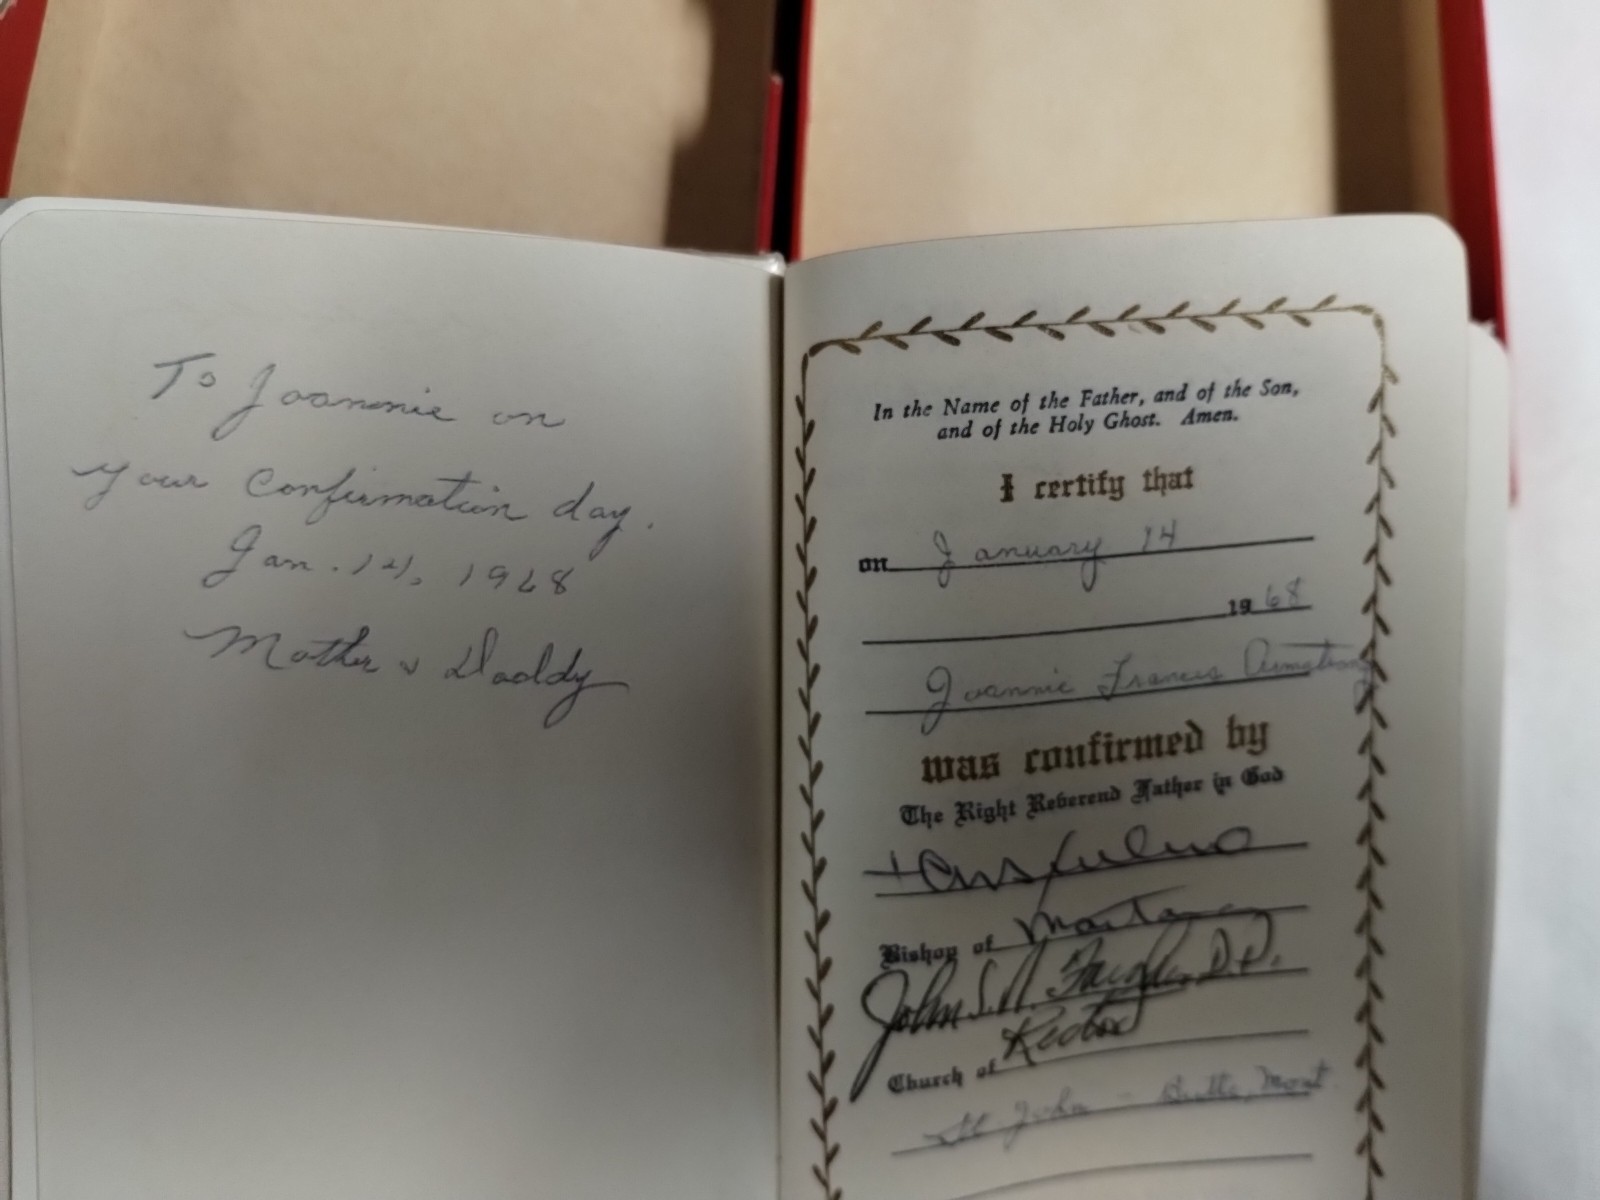 To Joannie on
your Confirmation day.
Jan. 14, 1968
Mother & Daddy
In the Name of the Father, and of the Son,
and of the Holy Ghost. Amen.
I certify that
on January 14
19 68
Joannie Francis Armstrong
was confirmed by
The Right Reverend Father in God
Bishop of Montana
John S. D.D.
Rector
Church of
St John - Butte, Mont